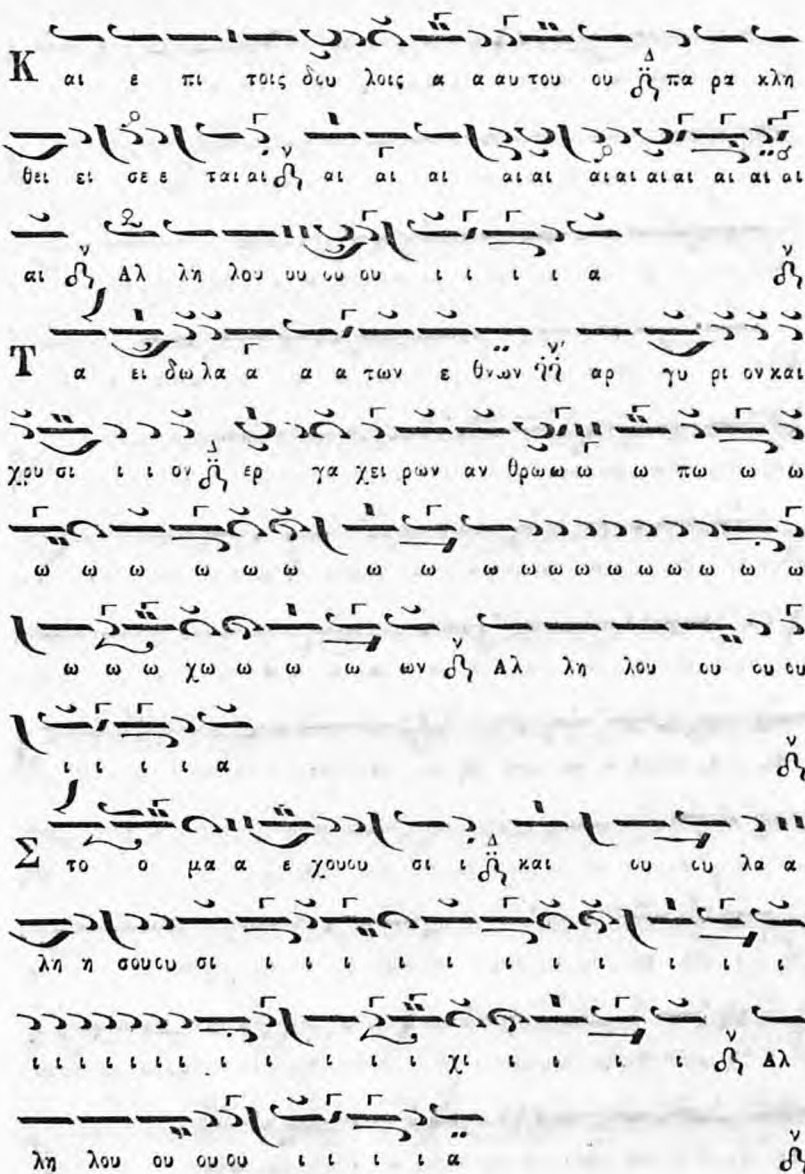 Κ αι ε πι τοις δου λοις α α αυ του ου Δ πα ρα κλη
θει ει σε ε ται αι ν αι αι αι αι αι αι αι αι αι αι αι αι
αι ν Αλ λη λου ου ου ου ι ι ι ι α ν
Τ α ει δω λα α α α των ε θνων ν' αρ γυ ρι ον και
χρυ σι ι ι ον Δ ερ γα χει ρων αν θρω ω ω ω πω ω ω
ω ω ω ω ω ω ω ω ω ω ω ω ω ω ω ω ω ω
ω ω ω χω ω ω ω ων ν Αλ λη λου ου ου ου
ι ι ι ι α ν
Σ το ο μα α ε χου ου σι ι Δ και ου ου λα α
λη η σου ου σι ι ι ι ι ι ι ι ι ι ι ι
ι ι ι ι ι ι ι ι ι ι ι χι ι ι ι ι ν Αλ
λη λου ου ου ου ι ι ι ι α ν